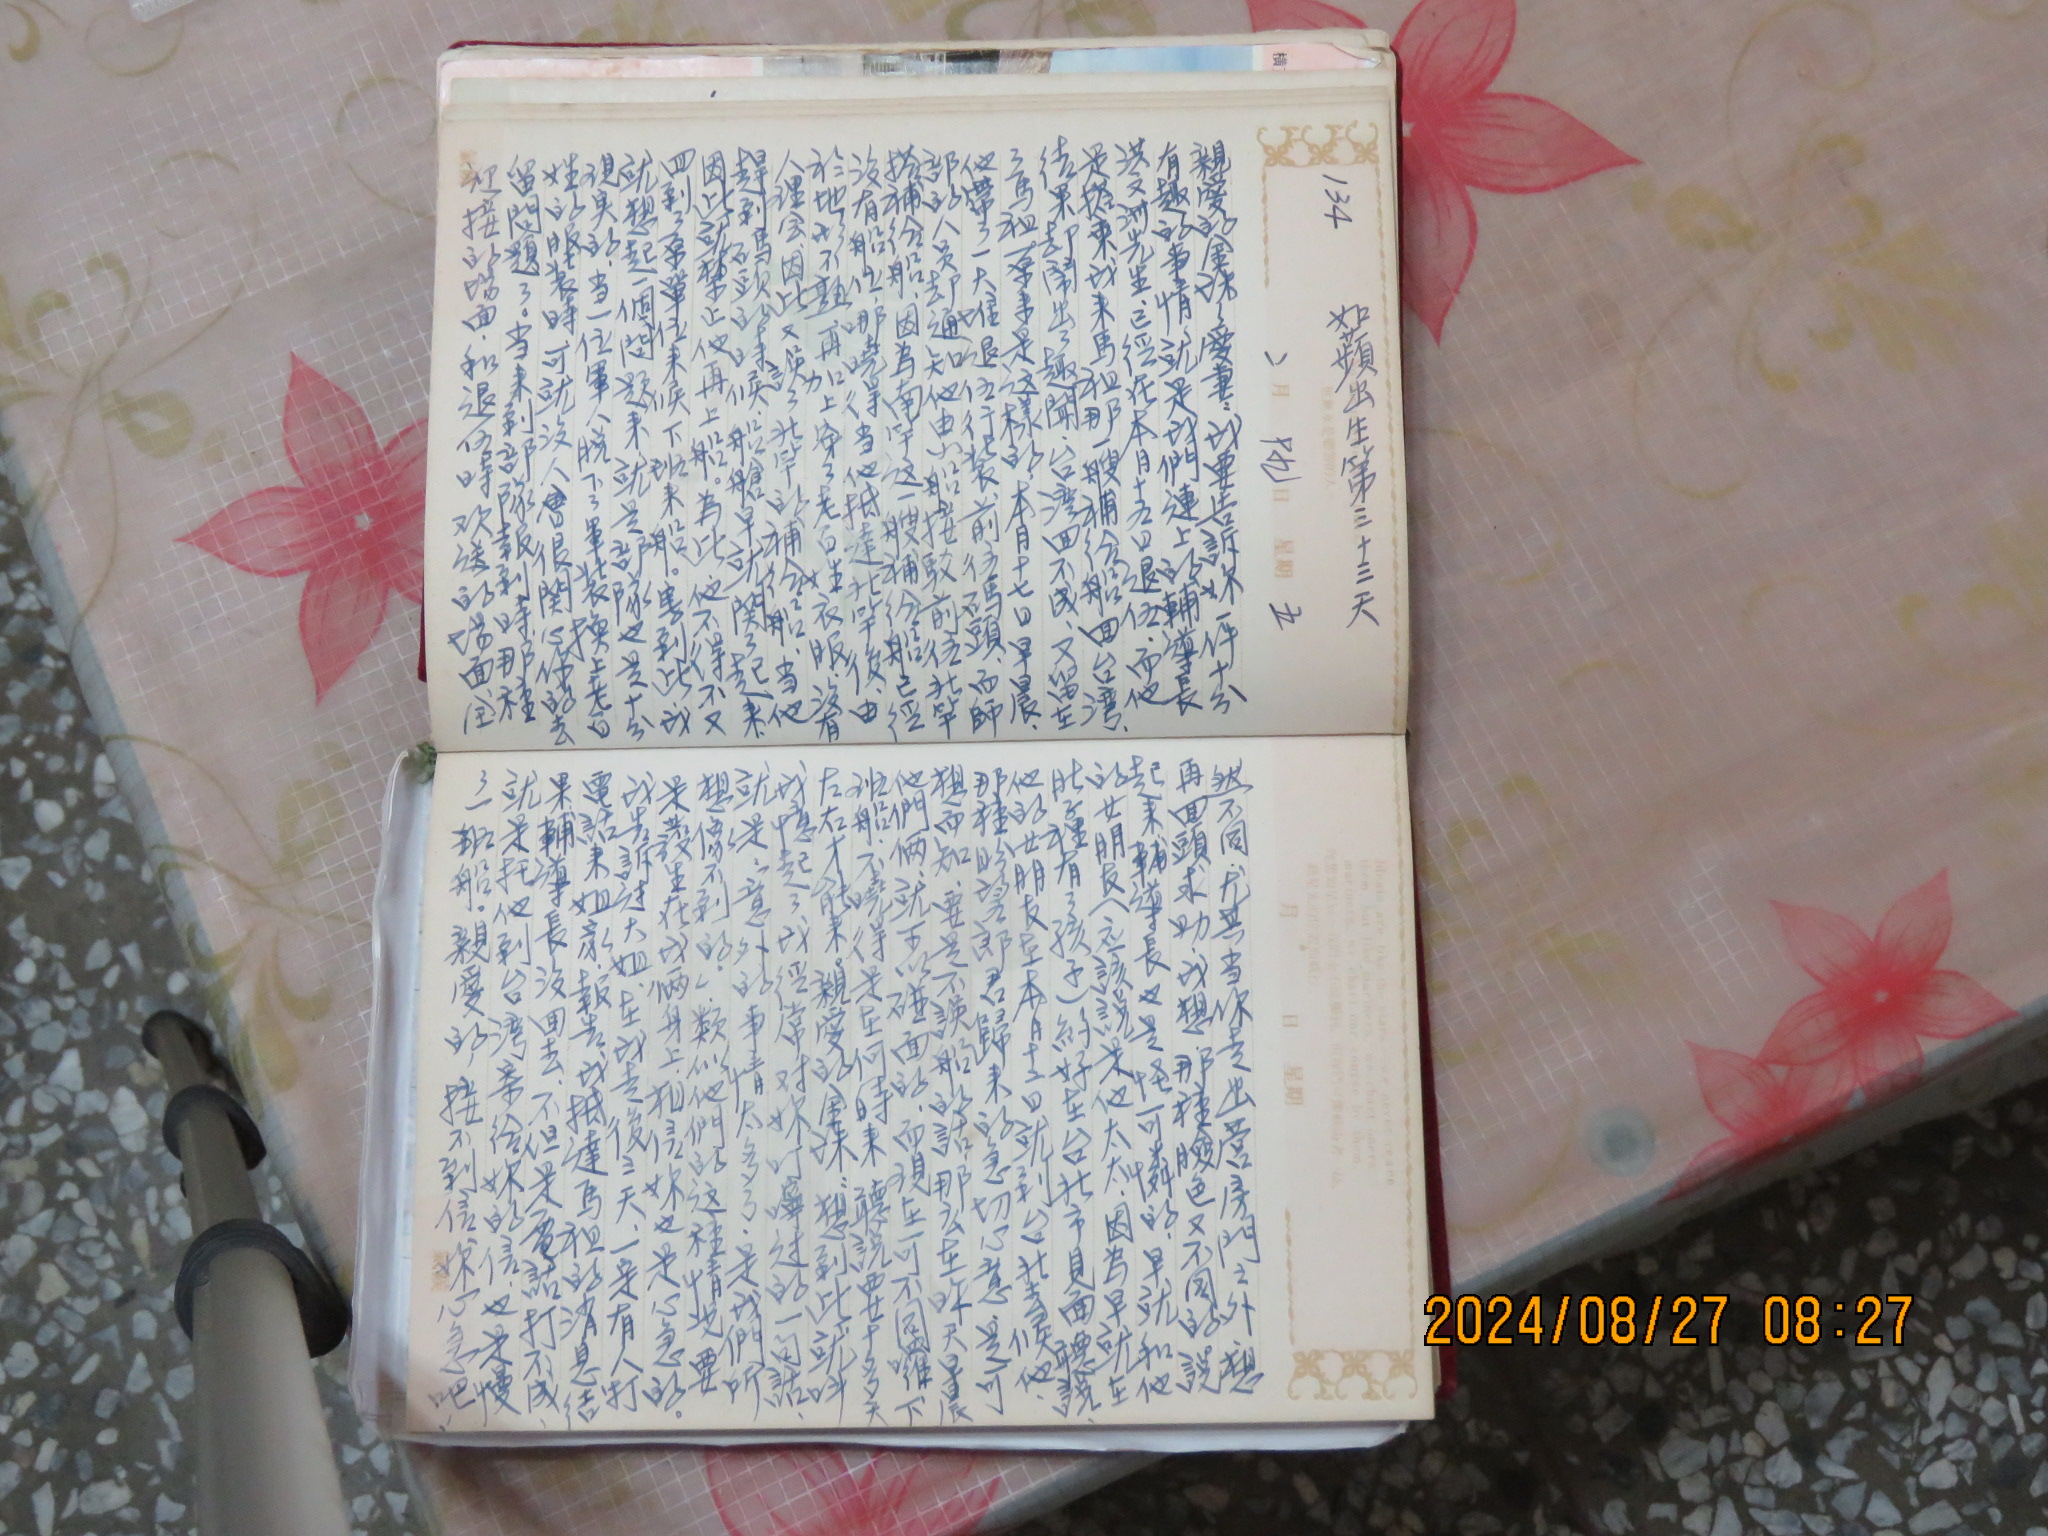 134
如蘋出生第三十三天
月 日 星期 五
親愛的金珠、愛妻:我要告訴妳一件十分
有趣的事情,就是我們連上的輔導長
洪文洲先生,已經在本月十五日退伍,而他
是搭乘我來馬祖那一艘補給船回台灣,
結果却鬧出了趣聞,台灣回不成,又留在
了馬祖,原來是這樣的,本月十七日早晨,
他帶了一大堆退伍行裝前往碼頭,而師
部的人員却通知他由小船接駁前往北竿
搭補給船,因為南竿這一艘補給船已經
沒有船位,那曉得當他抵達北竿後,由
於地形不熟,再加上穿了老百姓衣服,沒有
人理會,因此又誤了北竿的補給船,當他
趕到碼頭的時候,船艙早就關了起來,
因此就禁止他再上船。為此,他不得不又
回到了原單位來候下班來船。寫到此,我
就想起一個問題來,就是部隊也是十分
現實的,當一位軍人脫下了軍裝換上老百
姓的服裝時,可就沒人會很關心你的去
留問題了。當來到部隊報到時那種
迎接的場面,和退伍時歡送的場面,全
然不同,尤其當你走出營房門之外,想
再回頭求助,我想那種臉色又不同的,說
起來輔導長也是怪可憐的,早就和他
的女朋友(應該說是他太太,因為早就在
肚子裡有了孩子)約好在台北市見面,聽說,
他的女朋友在本月十三日就到台北去候他,
那種盼望郎君歸來的急切心意,是可
想而知,要是不誤船的話,那麼在昨天早晨
他們倆就可以碰面的,而現在可不同囉,下
班船不曉得是在何時來,聽說要廿多天
左右才能來。親愛的金珠:想到此,就叫
我想起了我經常對妳叮嚀過的一句話,
就是:意外的事情太多了,是我們所
想像不到的。類似他們的這種情況要
是發生在我倆身上,相信妳也是心急的。
我告訴過大姐,在我走後三天,一定有人打
電話來姐家,報告我抵達馬祖的消息,結
果輔導長沒回去,不但是電話打不成,
就是托他到台灣寄給妳的信,也是慢
了一班船。親愛的,接不到信妳心急吧,
月 日 星期
2024/08/27 08:27